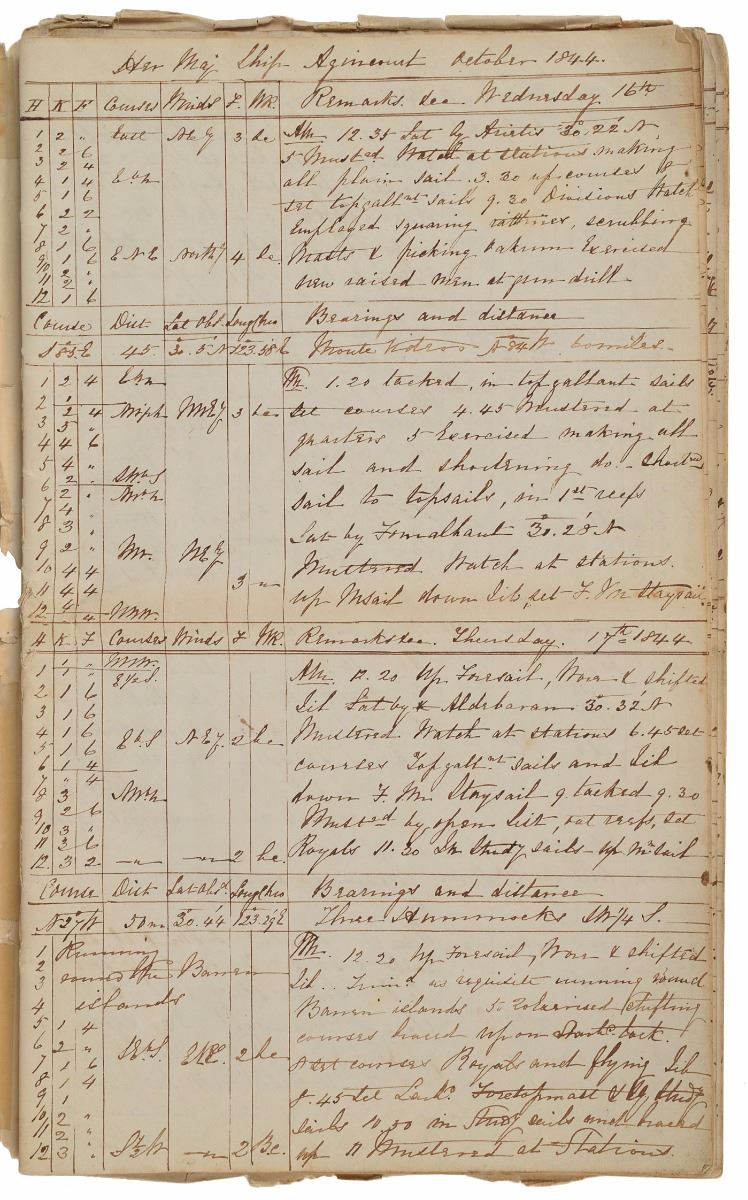 Her Maj Ship Agincourt October 1844.
H K F Courses Winds F. Wr. Remarks &ca Wednesday 16th
1 2 " East 3 bc AM 12.35 Lat by 30.22 N
2 2 6 5 Musted Watch at stations making
3 2 4 all plain sail 3.30 up courses &
4 1 4 set topgallnt sails 9.30 Divisions Watch
5 1 6 Employed squaring ratlines, scrubbing
6 2 2
7 2 "
8 1 6 E N E North 4 bc Masts & picking Oakum Exercised
9/10 1 6 new raised men at gun drill
11 2 "
12 1 6
Course Dist Lat Obs. Long Chro Bearings and distance
S 85 E 45. 30.5 N 123.38 E Monte Videos N 84 W 60 miles
1 2 4 PM. 1.20 tacked, in topgallant sails
2 1 set courses 4.45 Mustered at
3 2 4 3 bc quarters 5 Exercised making all
3 5 "
4 4 6
5 4 " sail and shortening do. Shortned
6 2 .
7 2 . sail to topsails, in 1st reefs
7 4 "
8 3 . Lat by Fomalhaut 30.28 N
9 2 " Mustered Watch at stations.
10 4 4
11 4 4 3 " up Msail down Jib, set F. Mn Staysail
12 4 4
H K F Courses Winds F Wr. Remarks &ca. Thursday. 17th 1844
1 1 " AM. 12.20 Up Foresail, Wore & shifted
2 1 6 Jib Lat by Aldebaran 30.32 N
3 1 6
4 1 6 2 bc Mustered Watch at stations 6.45 set
5 1 6 courses Topgallnt sails and Jib
6 1 4
7 " 4 down F. Mn Staysail 9 tacked 9.30
8 3
9 2 6 Musted by open list, out reefs, set
10 3 "
11 3 6 Royals 11.30 In Studg sails up Mn Sail
12 3 2 " " 2 bc
Course Dist Lat Obsd. Long Chro Bearings and distance
N 27 W 50 m 30.44 123.29 E Three Hummocks SW 1/4 S.
1 Running PM. 12.20 Up Foresail, Wore & shifted
2 round the Barren Jib.. Trimd as requisite running round
3 islands Barren islands 5.20 Exercised shifting
4
5 1 4 courses braced up on tack.
6 2 "
7 1 6 2 bc 8 set courses Royals and flying Jib
8 1 4
9 1 8.45 Set Larbd Foretopmast & Studg
10 2 " sails 10.50 in Studg sails and braced
11 2 "
12 3 " " 2 B.c. up 11 Mustered at Stations.